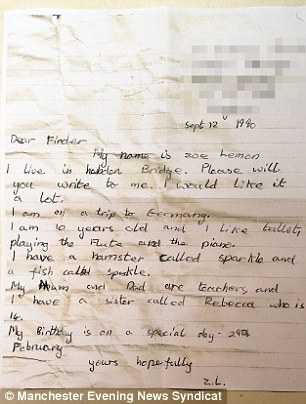 Sept 12 1990
Dear Finder
My name is Zoe Lemon
I live in hebden Bridge. Please will
you write to me. I would like it
a lot.
I am on a trip to Germany.
I am 10 years old and I like ballet,
playing the flute and the piano.
I have a hamster called sparkle and
a fish called speckle.
My Mum and Dad are teachers and
I have a sister called Rebecca who is
My Birthday is on a special day - 29th
February
yours hopefully
z.L.
© Manchester Evening News Syndicat